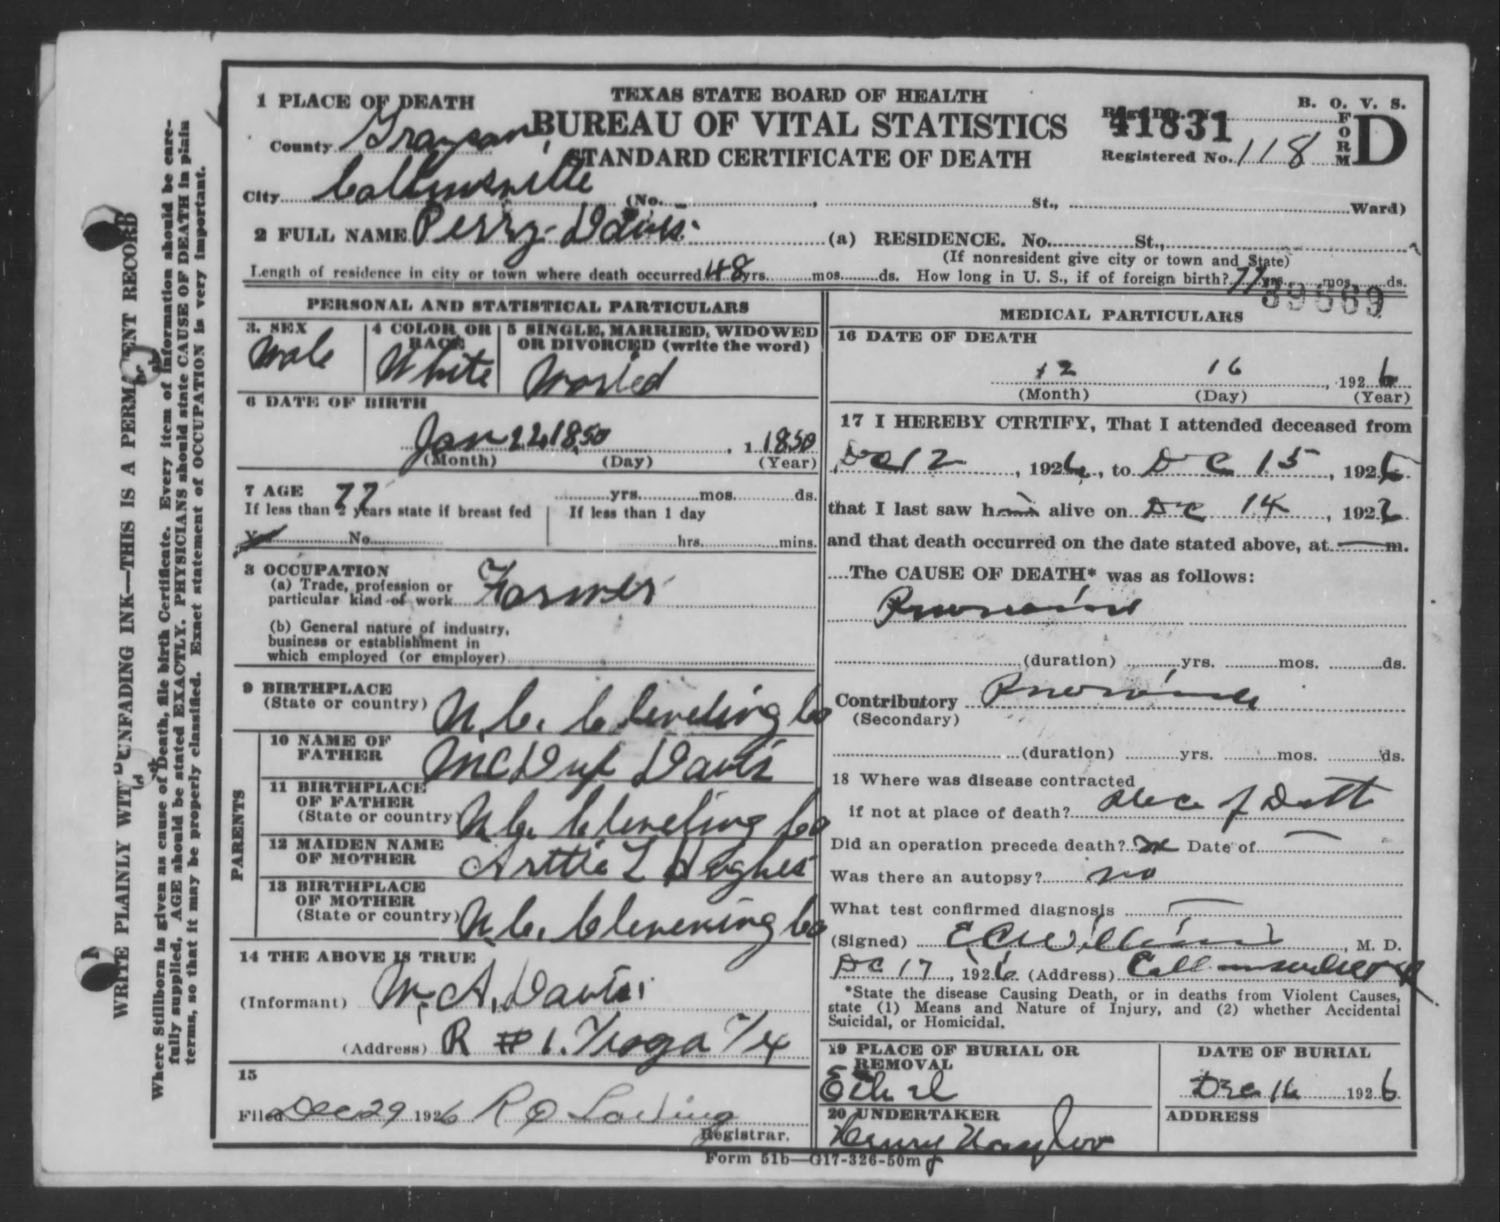 TEXAS STATE BOARD OF HEALTH
BUREAU OF VITAL STATISTICS
STANDARD CERTIFICATE OF DEATH
B. O. V. S.
FORM D
41831
Registered No. 118
1 PLACE OF DEATH
County Grayson
City Collinsville (No. St., Ward)
2 FULL NAME Perry Davis (a) RESIDENCE. No. St.,
(If nonresident give city or town and State)
Length of residence in city or town where death occurred 48 yrs. mos. ds. How long in U. S., if of foreign birth? 77 yrs. mos. ds.
39669
PERSONAL AND STATISTICAL PARTICULARS
3. SEX
Male
4 COLOR OR RACE
White
5 SINGLE, MARRIED, WIDOWED
OR DIVORCED (write the word)
Maried
6 DATE OF BIRTH
Jan 24 1850, 1 1850
(Month) (Day) (Year)
7 AGE 77 yrs. mos. ds.
If less than 2 years state if breast fed
If less than 1 day
Yes No
hrs. mins.
8 OCCUPATION
(a) Trade, profession or
particular kind of work Farmer
(b) General nature of industry,
business or establishment in
which employed (or employer)
9 BIRTHPLACE
(State or country) N.C. Cleveling Co
PARENTS
10 NAME OF
FATHER McDuf Davis
11 BIRTHPLACE
OF FATHER
(State or country) N.C. Cleveling Co
12 MAIDEN NAME
OF MOTHER Arttie L Hughes
13 BIRTHPLACE
OF MOTHER
(State or country) N.C. Clevening Co
14 THE ABOVE IS TRUE
(Informant) M. A. Davis
(Address) R #1. Tioga T/x
15
Filed Dec 29 1926
Registrar.
MEDICAL PARTICULARS
16 DATE OF DEATH
12 16, 1926
(Month) (Day) (Year)
17 I HEREBY CTRTIFY, That I attended deceased from
Dc 12, 1926, to Dc 15, 1926
that I last saw h alive on Dc 14, 192
and that death occurred on the date stated above, at m.
The CAUSE OF DEATH* was as follows:
Pneumonia
(duration) yrs. mos. ds.
Contributory
(Secondary)
(duration) yrs. mos. ds.
18 Where was disease contracted
if not at place of death?
Did an operation precede death? Date of
Was there an autopsy? no
What test confirmed diagnosis
(Signed) E C Williams, M. D.
Dc 17, 1926 (Address)
*State the disease Causing Death, or in deaths from Violent Causes,
state (1) Means and Nature of Injury, and (2) whether Accidental
Suicidal, or Homicidal.
19 PLACE OF BURIAL OR
REMOVAL
Ethel
DATE OF BURIAL
Dec 16 1926
20 UNDERTAKER
Henry Naylor
ADDRESS
Form 51b—G17-326-50m
WRITE PLAINLY WITH UNFADING INK—THIS IS A PERMANENT RECORD
Where Stillborn is given as cause of Death, file birth Certificate. Every item of information should be care-
fully supplied. AGE should be stated EXACTLY. PHYSICIANS should state CAUSE OF DEATH in plain
terms, so that it may be properly classified. Exact statement of OCCUPATION is very important.